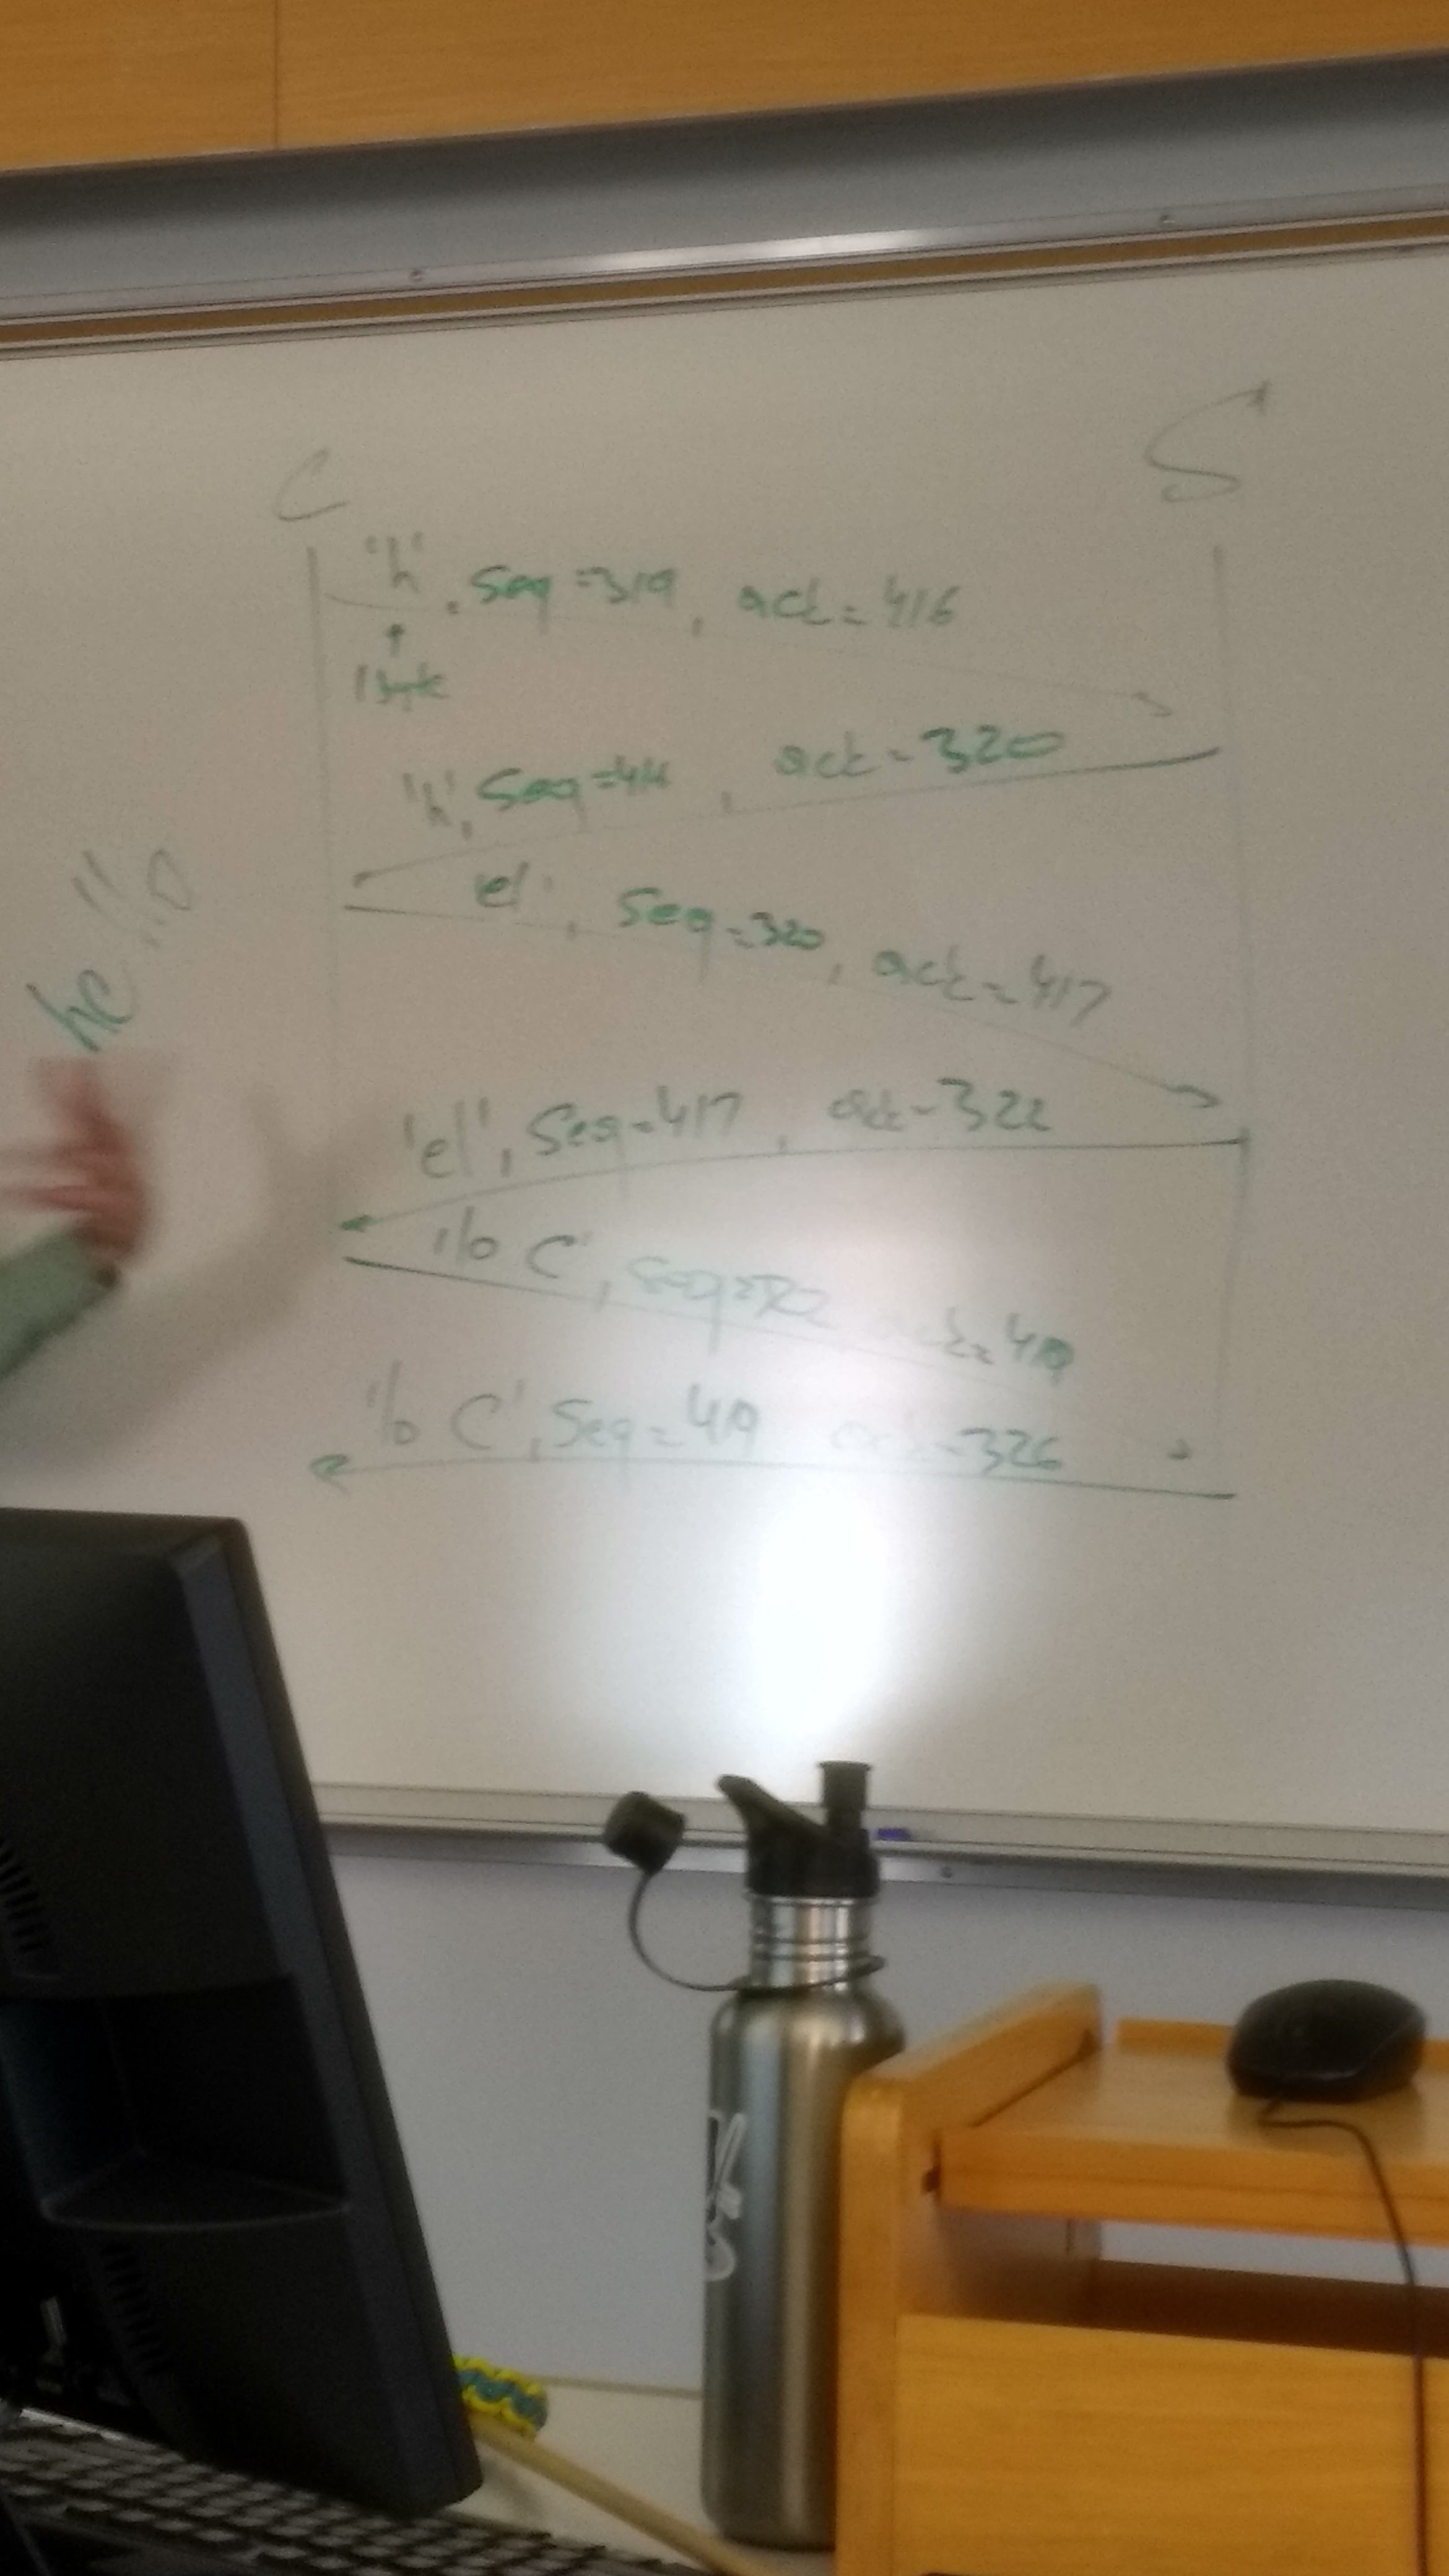 C S
'h', Seq=319, ack=416
1 byte
'h', Seq=416, ack=320
hello
'el', Seq=320, ack=417
'el', Seq=417, ack=322
'lo C', Seq=322 ack=419
'lo C', Seq=419 ack=326